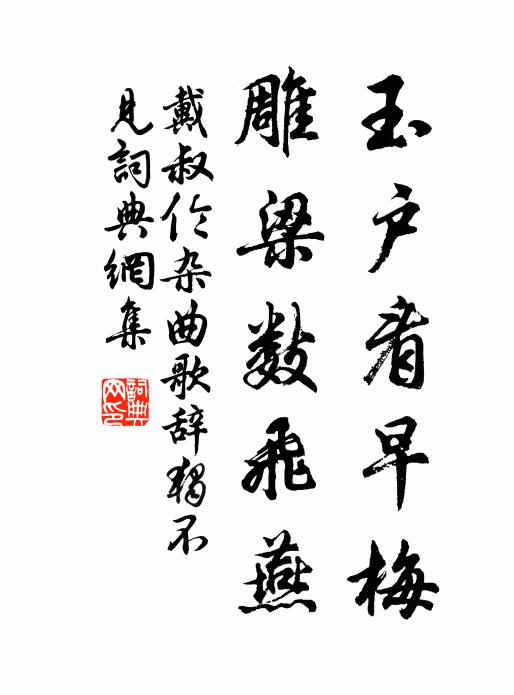 玉户看早梅
雕梁数飛燕
戴叔伦杂曲歌辞獨不
見詞典網集
詞典網印